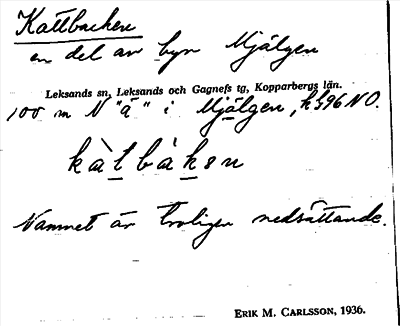 Kattbacken
en del av byn Mjälgen
Leksands sn, Leksands och Gagnefs tg, Kopparbergs län.
100 m N "ä" i Mjälgen, k 396 NO.
kàtbàkən
Namnet är troligen nedsättande.
ERIK M. CARLSSON, 1936.